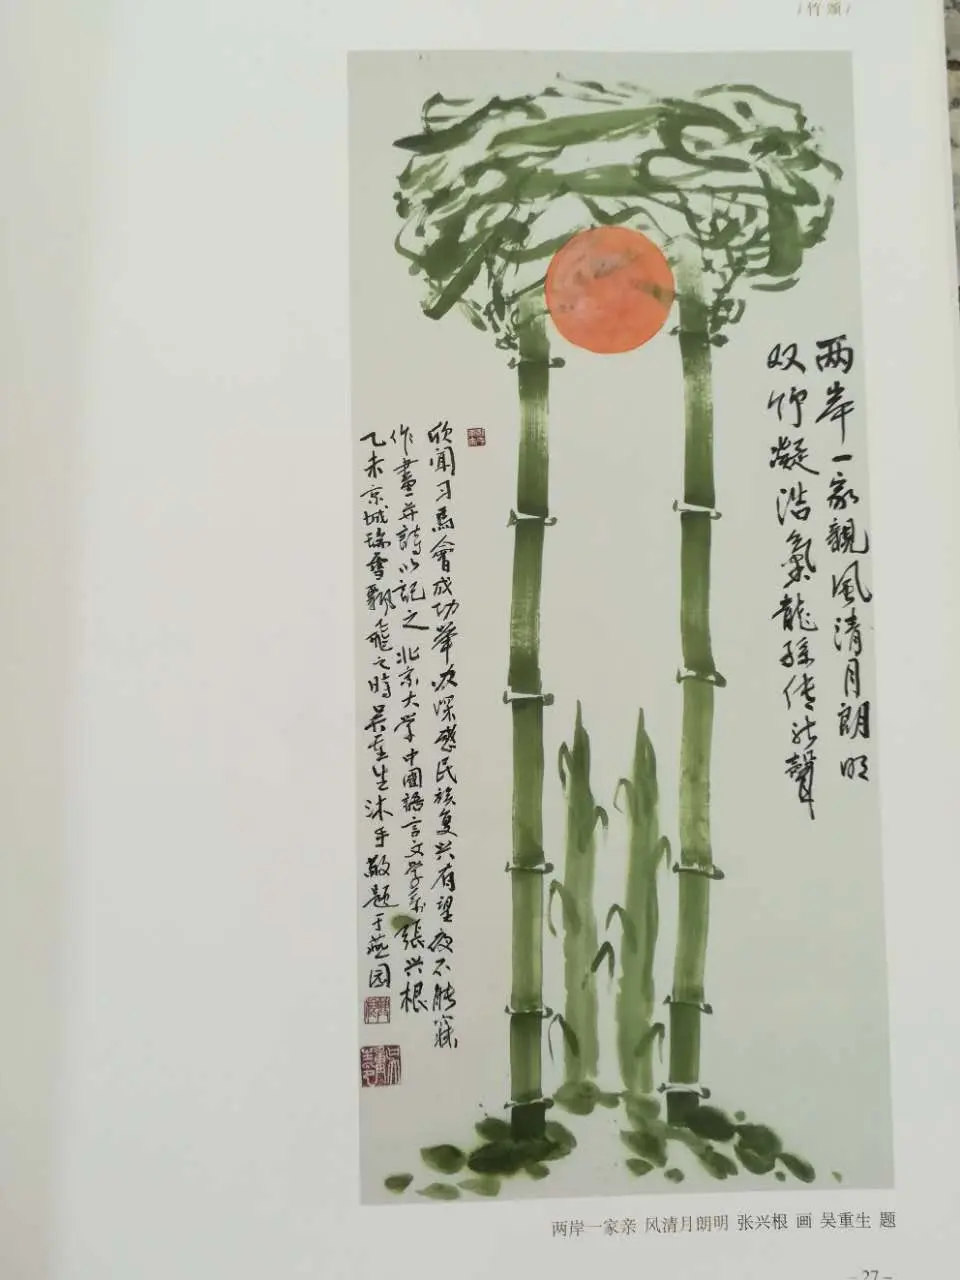 / 竹 颂 /
两岸一家親風清月朗明
双竹凝浩氣龍孫传
欣聞习馬會成功舉欢深感民族复兴有望夜不能寐
作畫并詩以記之 北京大学中國語言文学系張兴根
乙未京城瑞雪飘飛之時吴重生沐手敬题于燕园
两岸一家亲 风清月朗明 张兴根 画 吴重生 题
– 27 –